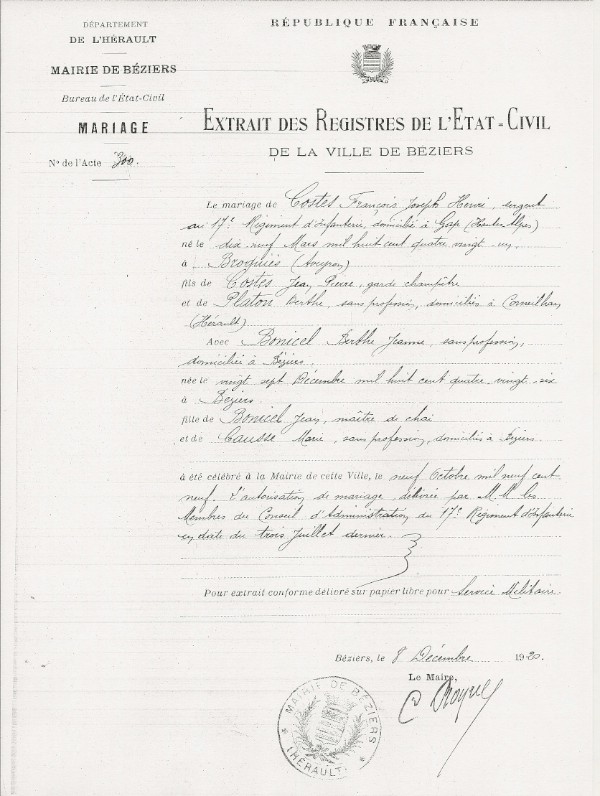 DÉPARTEMENT
DE L'HÉRAULT
MAIRIE DE BÉZIERS
Bureau de l'État-Civil
MARIAGE
N° de l'Acte 300.
RÉPUBLIQUE FRANÇAISE
EXTRAIT DES REGISTRES DE L'ETAT=CIVIL
DE LA VILLE DE BÉZIERS
Le mariage de Costes François Joseph Henri, sergent
au 17e Régiment d'infanterie, domicilié à Gap (Hautes Alpes)
né le dix neuf Mars mil huit cent quatre vingt un
à Broquiès (Aveyron)
fils de Costes Jean Pierre, garde champêtre
et de Platon Berthe, sans profession, domiciliés à Corneilhan
(Hérault)
Avec Bonicel Berthe Jeanne, sans profession,
domiciliée à Béziers.
née le vingt sept Décembre mil huit cent quatre vingt six
à Béziers.
fille de Bonicel Jean, maître de chai
et de Causse Marie, sans profession, domiciliés à Béziers
a été célébré à la Mairie de cette Ville, le neuf Octobre mil neuf cent
neuf. L'autorisation de mariage délivrée par M.M. les
Membres du Conseil d'Administration du 17e Régiment d'Infanterie
en date du trois Juillet dernier.
Pour extrait conforme délivré sur papier libre pour Service Militaire.
Béziers, le 8 Décembre 1920.
Le Maire,
MAIRIE DE BÉZIERS
(HÉRAULT)